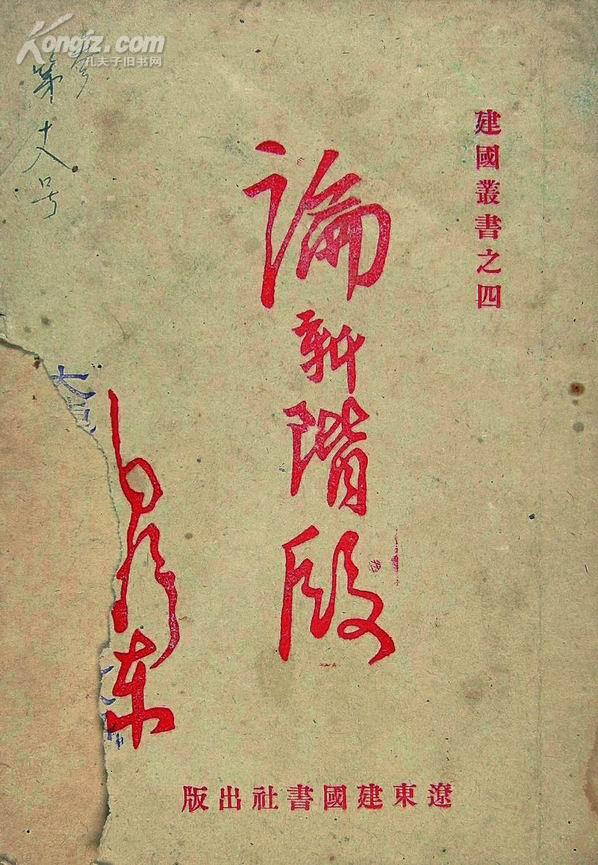 Kongfz.com
孔夫子旧书网
第十八号
建國叢書之四
論新階段
毛泽东
遼東建國書社出版